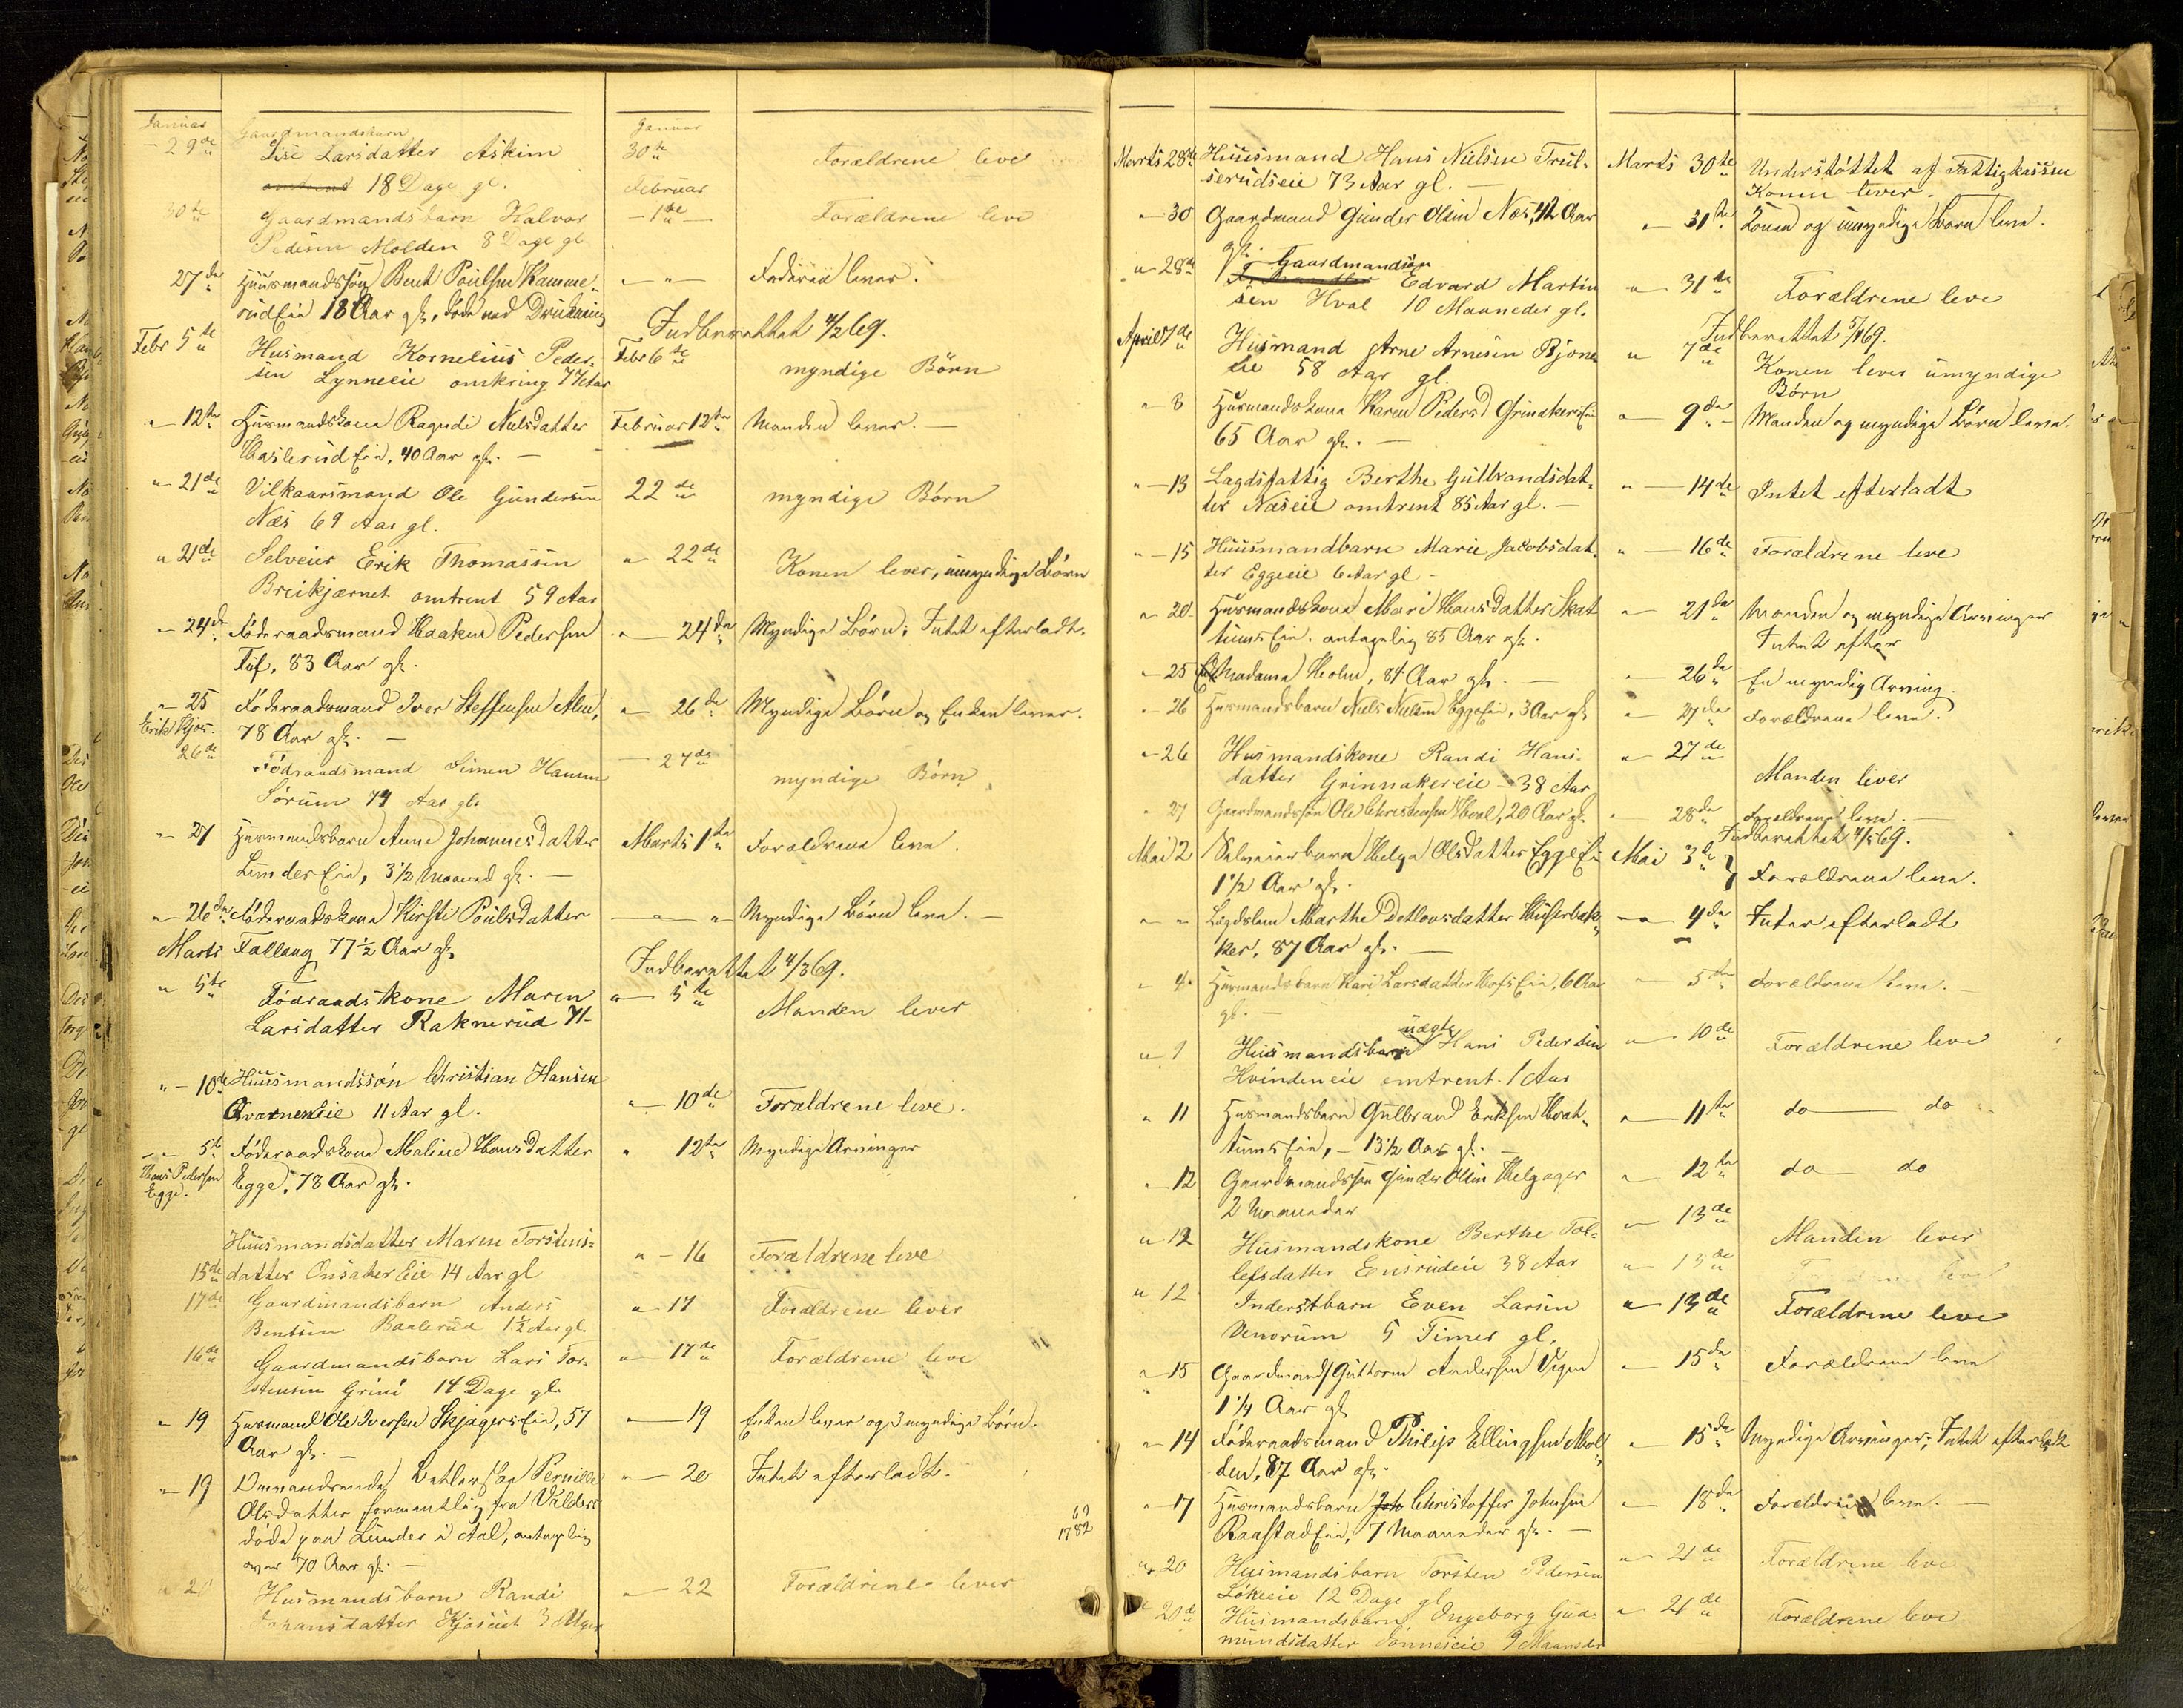 Januar
- 29de
Gaardmandsbarn
Lise Larsdatter Askim
18 Dage gl.
Januar
30te
Forældrene leve
30te
Gaardmandsbarn Halvor
Pedersen Molden 8 Dage gl
Februar
- 1ste -
Forældrene leve
27de
Huusmandssøn Bent Poulsen Ramme-
rudeie 18 Aar gl., døde ved Drukning
- " -
Faderen lever.
Indberettet 4/2 69.
Febr 5te
Husmand Kornelius Peder-
sen Lynneeie omkring 77 Aar
Febr 6te
myndige Børn
" 12te
Husmandskone Ragndi Nielsdatter
Haslerudeie, 40 Aar gl. -
Februar 12te
Manden lever. -
" 21de
Vilkaarsmand Ole Gundersen
Næs 69 Aar gl.
22de
myndige Børn
" 21de
Selveier Erik Thomassen
Breikjærnet omtrent 59 Aar
" 22de
Konen lever, umyndige Børn
" 24de
Føderaadsmand Haaken Pedersen
Tuf, 83 Aar gl.
" 24de
Myndige Børn; Intet efterladt.
" 25
Erik Kjos.
Føderaadsmand Iver Steffensen Alm,
78 Aar gl. -
" 26de
Myndige Børn og Enken lever.
26de
Fødraadsmand Simen Hamm
Sørum 74 Aar gl.
- 27de
myndige Børn
" 27
Husmandsbarn Anne Johannesdatter
Lunderseie, 3 1/2 Maaned gl. -
Marts 1ste
Forældrene leve.
" 26de
Føderaadskone Kirsti Poulsdatter
Fallang 77 1/2 Aar gl.
- " "
Myndige Børn leve. -
Marts
Indberettet 4/3 69.
" 5te
Fødraadskone Maren
Larsdatter Raknerud 71-
" 5te
Manden lever
" - 10de
Huusmandssøn Christian Hansen
Qværneneie 11 Aar gl.
" 10de
Forældrene leve.
" 5te
Hans Pedersen
Egge.
Føderaadskone Maline Hansdatter
Egge, 78 Aar gl.
" 12te
Myndige Arvinger
15de
Huusmandsdatter Maren Torstens-
datter Onsaker Eie 14 Aar gl
" - 16
Forældrene leve
17de
Gaardmandsbarn Anders
Bentsen Baalerud 1 1/2 Aar gl.
" 17
Forældrene lever
16de
Gaardmandsbarn Lars Tor-
stensen Grini 14 Dage gl.
" 17de
Forældrene leve
" 19
Husmand Ole Iversen Skjagerseie, 57
Aar gl. -
- 19
Enken lever og 3 myndige Børn.
" 19
Omvandrende Betlerske Pernille
Olsdatter formentlig fra Valders
døde paa Lunder i Aal, antagelig
over 70 Aar gl. -
" 20
Intet efterladt.
69
1782
Husmandsbarn Randi
Johansdatter Kjoseiet 3 Uger
" 22
Forældrene lever
Marts 28de
Huusmand Hans Nielsen Trul-
serudseie 73 Aar gl. -
Marts 30te
Understøttet af Fattigkassen
Konen lever -
" 30
Gaardmand Gunder Olsen Næs, 42 Aar
gl.
" 31te
Konen og umyndige Børn leve.
" 28de
Gaardmandsøn
Edvard Martin
sen Hval 10 Maaneder gl.
" 31te
Forældrene leve
Indberettet 5/4 69.
April 7de
Husmand Arne Arnesen Bjone
eie 58 Aar gl.
" 7de
Konen lever umyndige
Børn
" 8
Husmandskone Karen Pedersd Grinakerseie
65 Aar gl. -
" 9de
Manden og myndige Børn leve.
" 13
Lægdsfattig Berthe Gulbrandsdat-
ter Næseie omtrent 85 Aar gl. -
" 14de
Intet efterladt
" - 15
Huusmandbarn Marie Jacobsdat-
ter Eggeeie 6 Aar gl -
" - 16de
Forældrene leve
" 20
Husmandskone Mari Hansdatter Skut
tumseie, antagelig 85 Aar gl.
" 21de
Manden og myndige Arvinger
Intet efter
" 25
Madame Holm, 84 Aar gl. -
" 26de
En myndig Arving.
" 26
Husmandsbarn Niels Nielsen Eggeeie, 3 Aar gl
" 27de
Forældrene leve.
" 26
Husmandskone Randi Hans-
datter Grinnakereie 38 Aar
" 27de
Manden lever
" 27
Gaardmandssøn Ole Christensen Hval, 20 Aar gl.
" 28de
Forældrene leve. -
Indberettet 4/5 69.
Mai 2
Selveierbarn Helga Olsdatter Eggeeie
1 1/2 Aar gl.
Mai 3de
Forældrene leve.
" "
Lægdslem Marthe Detlovsdatter Huserbak-
ker, 87 Aar gl. -
- " 4de
Intet efterladt
" 4
Husmandsbarn Kari Larsdatter Hofseie, 6 Aar
gl. -
" 5te
Forældrene leve. -
" 9
uægte
Husmandsbarn Hans Pedersen
Hvindeneie omtrent 1 Aar
" 10de
Forældrene leve
" 11
Husmandsbarn Gulbrand Eriksen Hval-
tumseie, - 13 1/2 Aar gl. -
" 11te
do - do
" 12
Gaardmandssøn Gunder Olsen Helgager
2 Maaneder
" 12te
do - do
" 12
Husmandskone Berthe Tol-
lefsdatter Ensrudeie 38 Aar
" 13de
Manden lever
" 13de
" 12
Inderstbarn Even Larsen
Venorum 5 Timer gl.
" 13de
Forældrene leve
" 15
Gaardmand Guttorm Andersen Vigen
1 1/4 Aar gl
" 15de
Forældrene leve
" 14
Føderaadsmand Philip Ellingsen Mol-
den, 87 Aar gl.
" 15de
Myndige Arvinger; Intet efterladt
" 17
Husmandsbarn Christoffer Johnsen
Raastadeie, 7 Maaneder gl. -
" 18de
Forældrene leve. -
" 20
Husmandsbarn Torsten Pedersen
Løkeeie 12 Dage gl
" 21de
Forældrene leve
20de
Husmandsbarn Ingeborg Gud-
mundsdatter Tønneseie 9 Maaneder
" 21de
Forældrene leve